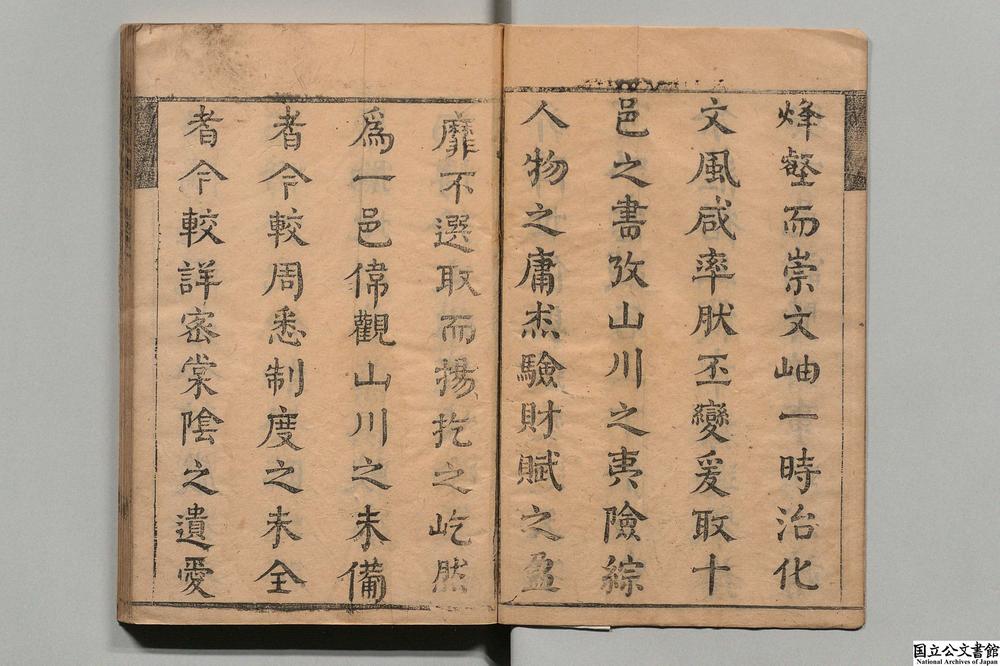 烽壑而崇文岫一時治化
文風咸率肰丕變爰取十
邑之書攷山川之夷險綜
人物之庸杰驗財賦之盈
靡不選取而揚扢之屹然
爲一邑偉觀山川之未備
者今較周悉制度之未全
者今較詳密棠陰之遺愛
国立公文書館
National Archives of Japan